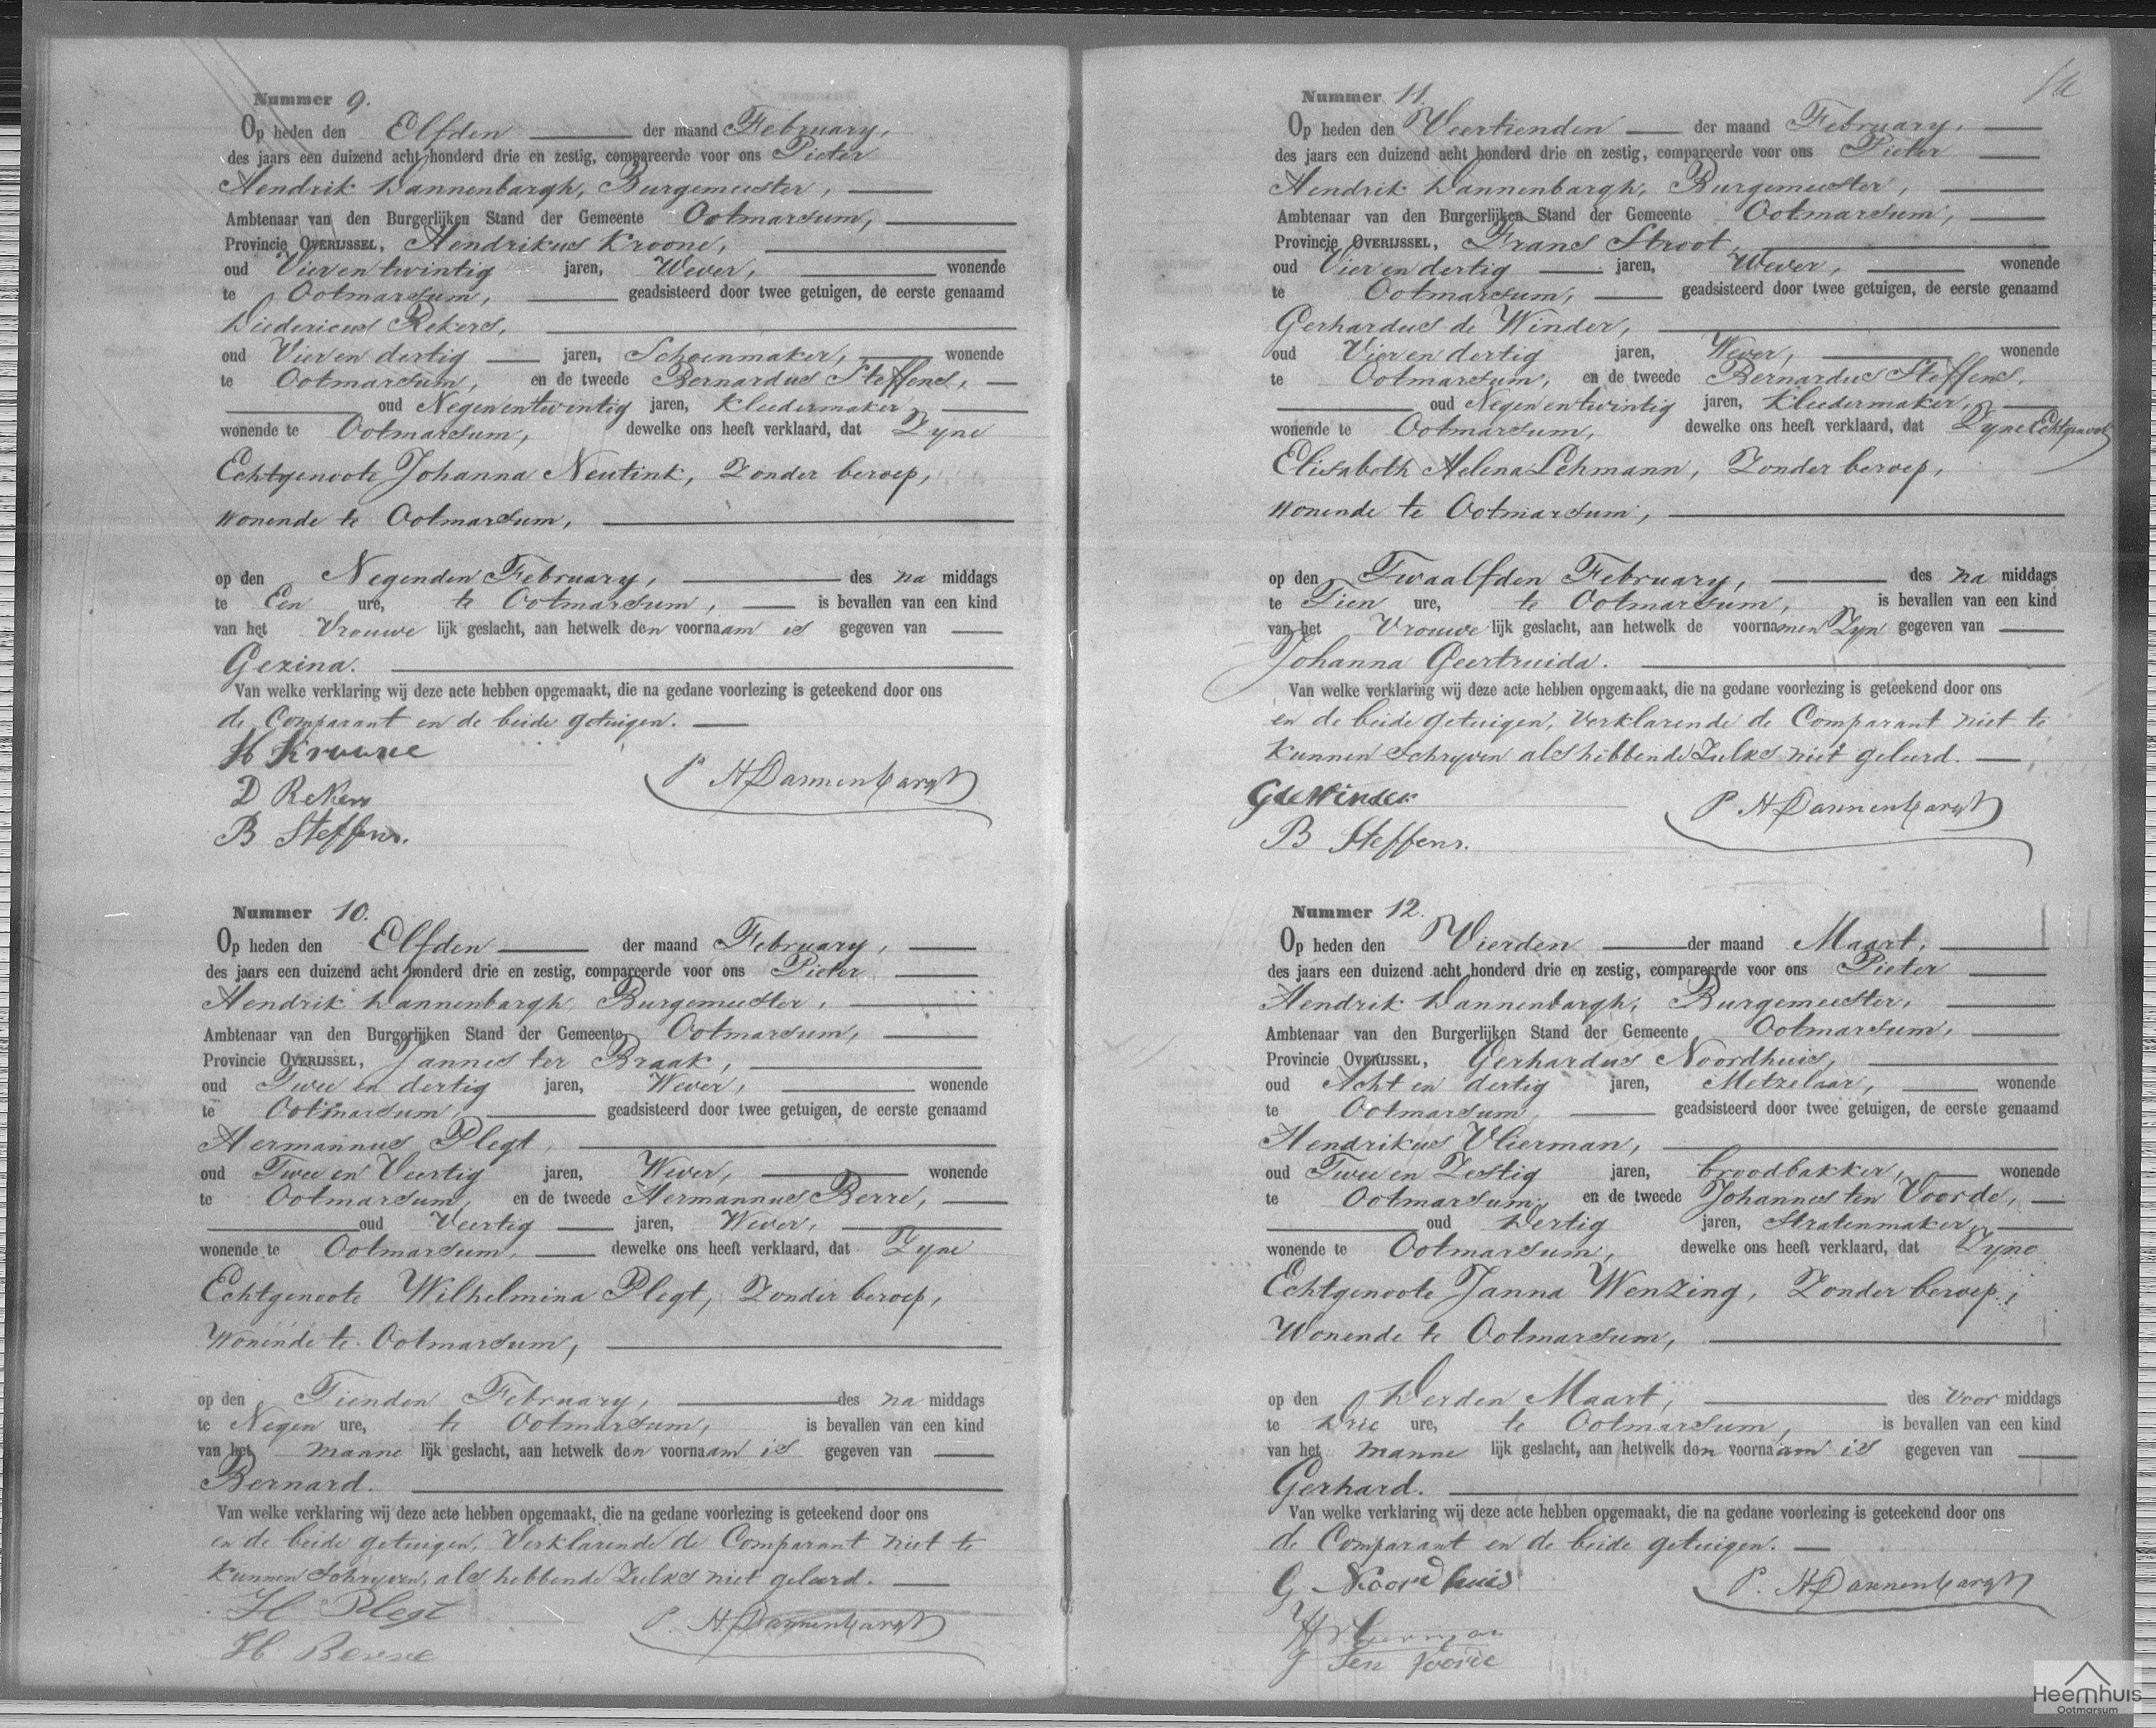 Nummer 9.
Op heden den Elfden der maand February,
des jaars een duizend acht honderd drie en zestig, compareerde voor ons Pieter
Hendrik Dannenbargh, Burgemeester,
Ambtenaar van den Burgerlijken Stand der Gemeente Ootmarsum,
Provincie OVERIJSSEL, Hendrikus Kroone,
oud Vier en twintig jaren, Wever, wonende
te Ootmarsum, geadsisteerd door twee getuigen, de eerste genaamd
Diedericus Rekers,
oud Vier en dertig jaren, Schoenmaker, wonende
te Ootmarsum, en de tweede Bernardus Steffens,
oud Negen en twintig jaren, Kleedermaker
wonende te Ootmarsum, dewelke ons heeft verklaard, dat Zyne
Echtgenoote Johanna Neutink, Zonder beroep,
Wonende te Ootmarsum,
op den Negenden February, des na middags
te Een ure, te Ootmarsum, is bevallen van een kind
van het Vrouwe lijk geslacht, aan hetwelk den voornaam is gegeven van
Gezina.
Van welke verklaring wij deze acte hebben opgemaakt, die na gedane voorlezing is geteekend door ons
de Comparant en de beide getuigen.
H Kroone
D Rekers
P H Dannenbargh
B Steffens.
Nummer 10.
Op heden den Elfden der maand February,
des jaars een duizend acht honderd drie en zestig, compareerde voor ons Pieter
Hendrik Dannenbargh, Burgemeester,
Ambtenaar van den Burgerlijken Stand der Gemeente Ootmarsum,
Provincie OVERIJSSEL, Jannes ter Braak,
oud Twee en dertig jaren, Wever, wonende
te Ootmarsum, geadsisteerd door twee getuigen, de eerste genaamd
Hermannus Plegt,
oud Twee en Veertig jaren, Wever, wonende
te Ootmarsum, en de tweede Hermannus Berre,
oud Veertig jaren, Wever,
wonende te Ootmarsum, dewelke ons heeft verklaard, dat Zyne
Echtgenoote Wilhelmina Plegt, Zonder beroep,
Wonende te Ootmarsum,
op den Tienden February, des na middags
te Negen ure, te Ootmarsum, is bevallen van een kind
van het manne lijk geslacht, aan hetwelk den voornaam is gegeven van
Bernard.
Van welke verklaring wij deze acte hebben opgemaakt, die na gedane voorlezing is geteekend door ons
en de beide getuigen, Verklarende de Comparant niet te
Kunnen Schryven, als hebbende Zulks niet geleerd.
H Plegt
P. H Dannenbargh
H Berre
Nummer 11.
Op heden den Veertienden der maand February,
des jaars een duizend acht honderd drie en zestig, compareerde voor ons Pieter
Hendrik Dannenbargh, Burgemeester,
Ambtenaar van den Burgerlijken Stand der Gemeente Ootmarsum,
Provincie OVERIJSSEL, Frans Stroot,
oud Vier en dertig jaren, Wever, wonende
te Ootmarsum, geadsisteerd door twee getuigen, de eerste genaamd
Gerhardus de Winder,
oud Vier en dertig jaren, Wever, wonende
te Ootmarsum, en de tweede Bernardus Steffens,
oud Negen en twintig jaren, Kleedermaker,
wonende te Ootmarsum, dewelke ons heeft verklaard, dat Zyne Echtgenoot
Elisabeth Helena Lehmann, Zonder beroep,
Wonende te Ootmarsum,
op den Twaalfden February, des na middags
te Tien ure, te Ootmarsum, is bevallen van een kind
van het Vrouwe lijk geslacht, aan hetwelk de voornamen Zyn gegeven van
Johanna Geertruida.
Van welke verklaring wij deze acte hebben opgemaakt, die na gedane voorlezing is geteekend door ons
en de beide getuigen, Verklarende de Comparant niet te
Kunnen Schryven als hebbende Zulks niet geleerd.
G de Winder
P H Dannenbargh
B Steffens.
Nummer 12.
Op heden den Vierden der maand Maart,
des jaars een duizend acht honderd drie en zestig, compareerde voor ons Pieter
Hendrik Dannenbargh, Burgemeester,
Ambtenaar van den Burgerlijken Stand der Gemeente Ootmarsum,
Provincie OVERIJSSEL, Gerhardus Noordhuis,
oud Acht en dertig jaren, Metzelaar, wonende
te Ootmarsum, geadsisteerd door twee getuigen, de eerste genaamd
Hendrikus Vlierman,
oud Twee en Zestig jaren, broodbakker, wonende
te Ootmarsum, en de tweede Johannes ten Voorde,
oud Dertig jaren, Stratenmaker,
wonende te Ootmarsum, dewelke ons heeft verklaard, dat Zyne
Echtgenoote Janna Wenzing, Zonder beroep,
Wonende te Ootmarsum,
op den Derden Maart, des Voor middags
te Drie ure, te Ootmarsum, is bevallen van een kind
van het manne lijk geslacht, aan hetwelk den voornaam is gegeven van
Gerhard.
Van welke verklaring wij deze acte hebben opgemaakt, die na gedane voorlezing is geteekend door ons
de Comparant en de beide getuigen.
G Noordhuis
P. H Dannenbargh
H Vlierman
J ten Voorde
Heemhuis
Ootmarsum